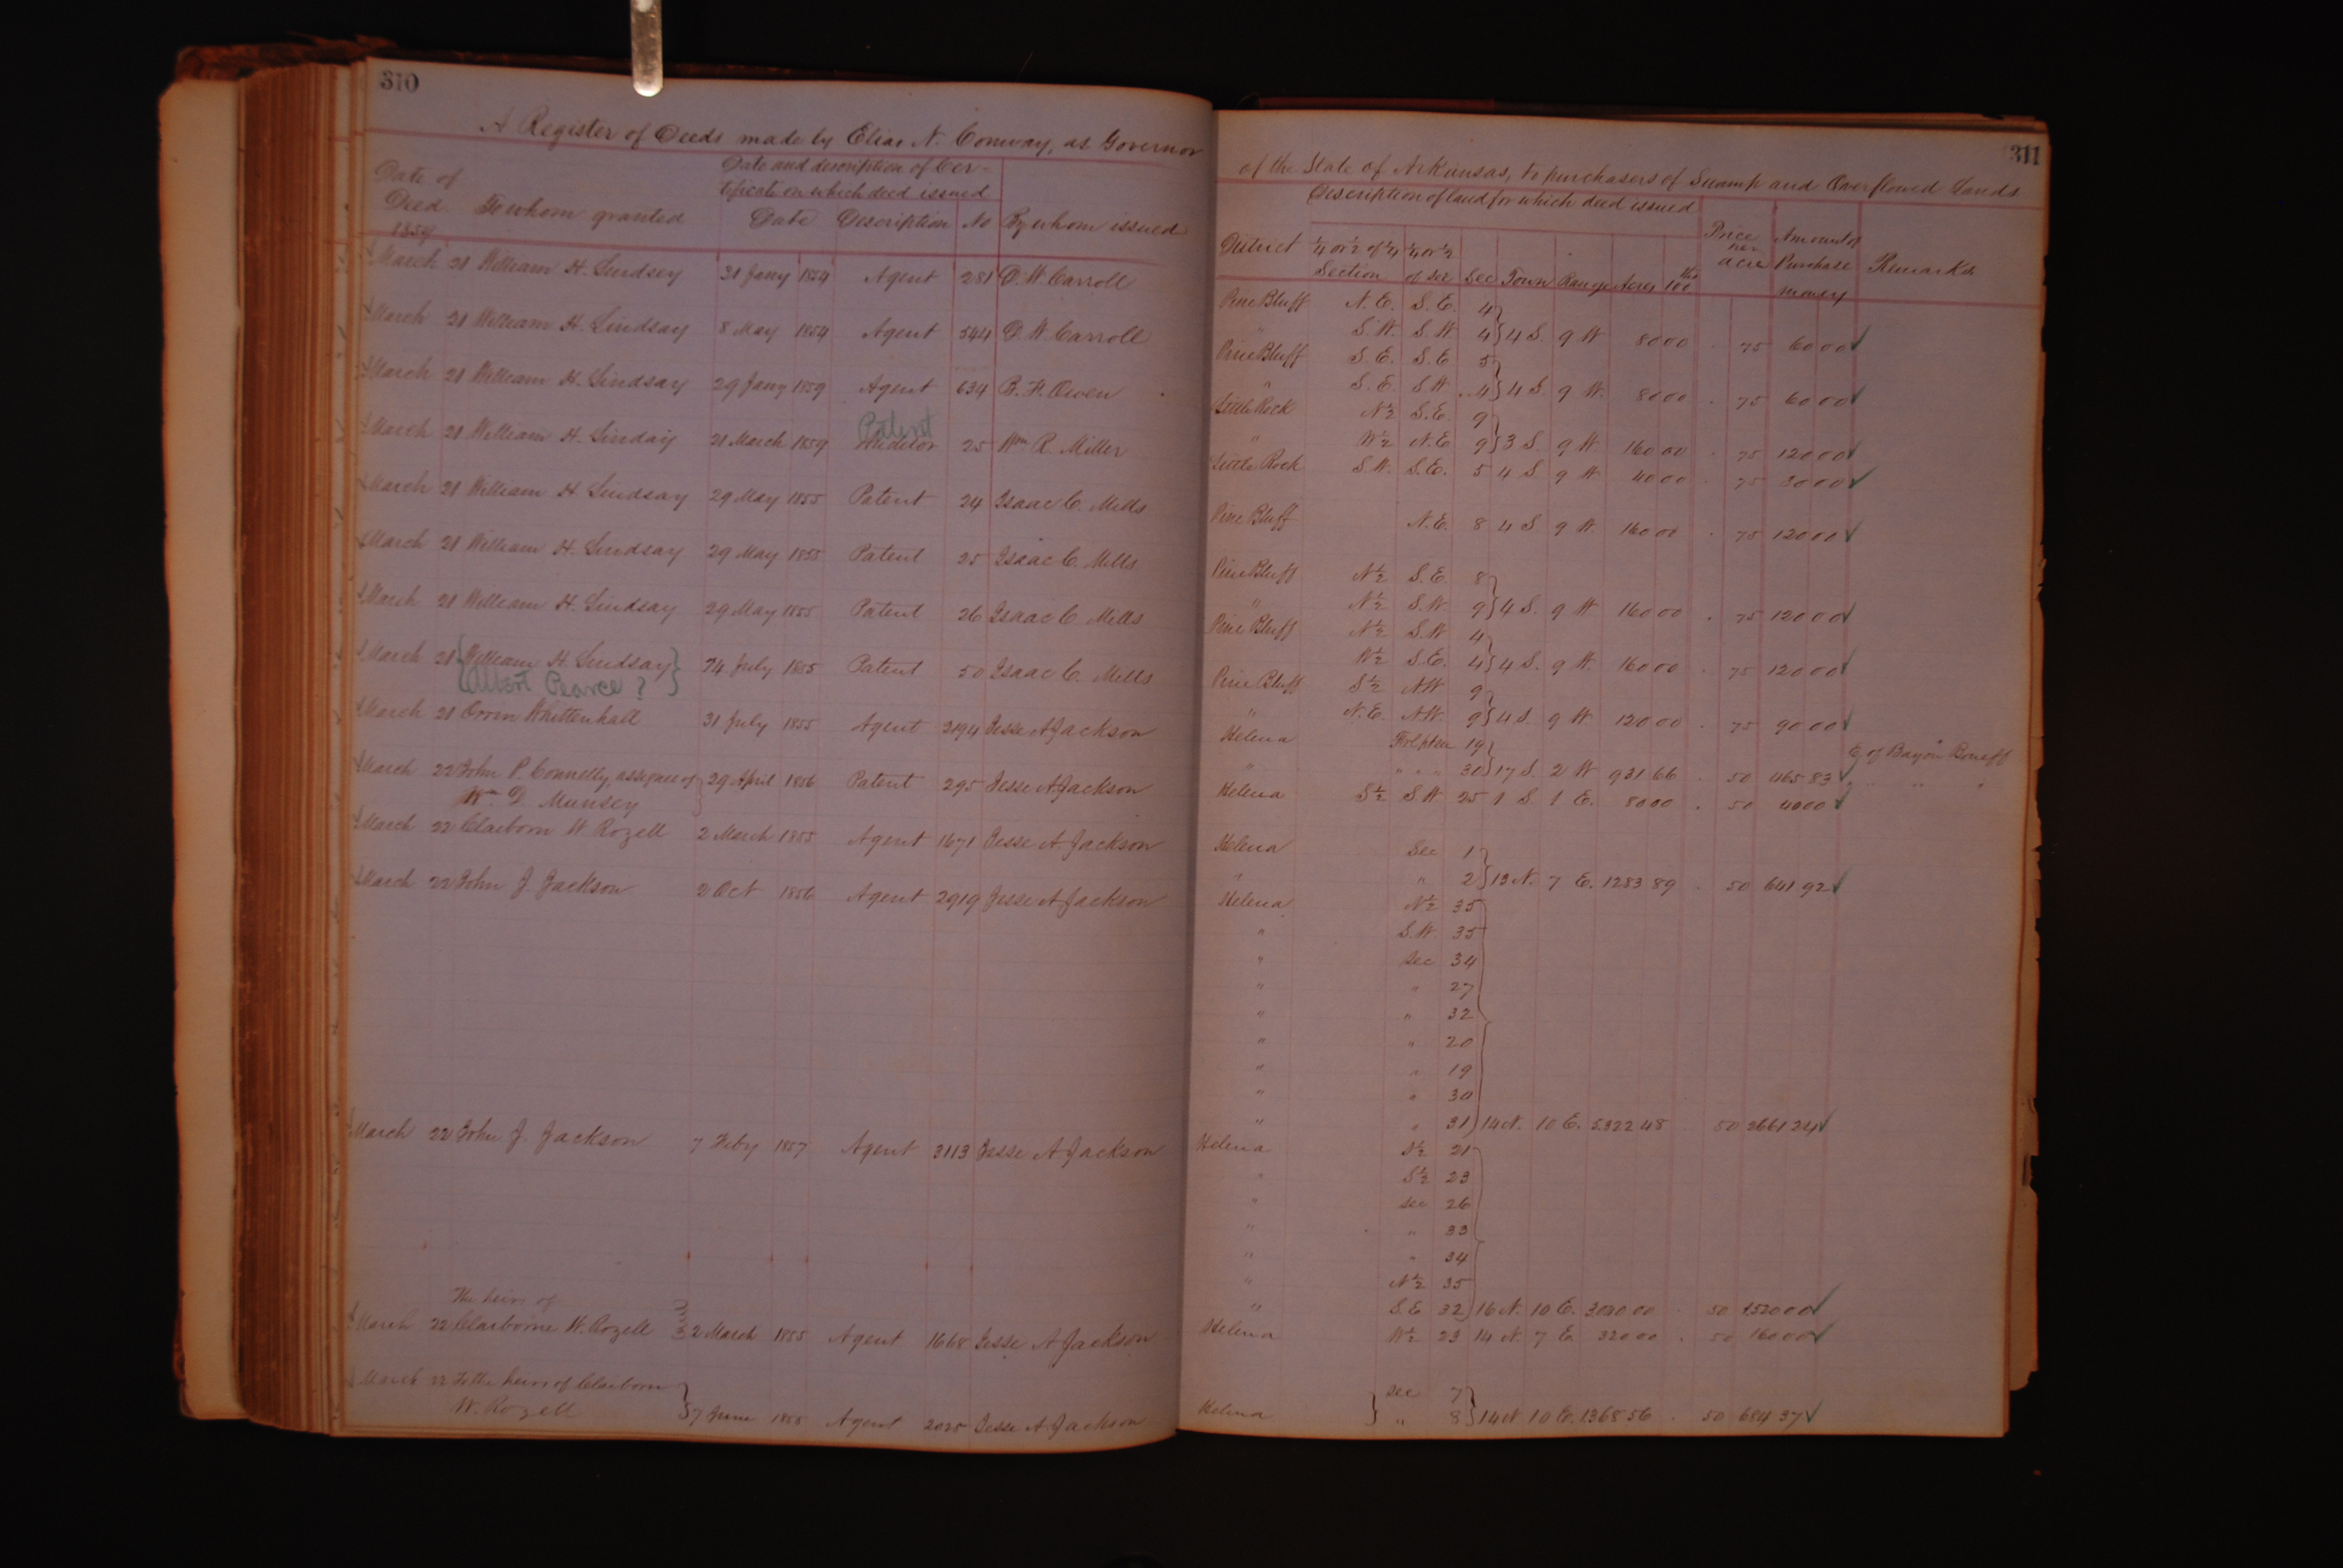 310
A Register of Deeds made by Elias N. Conway, as Governor
Date of Deed 1859 To whom granted Date and description of Certificate on which deed issued Date Description No By whom issued
March 21 William H. Lindsey 31 Jany 1854 Agent 281 D. W. Carroll
March 21 William H. Lindsay 8 May 1854 Agent 544 D. W. Carroll
March 21 William H. Lindsay 29 Jany 1859 Agent 634 B. F. Owen
Patent
March 21 William H. Linday 21 March 1859 Auditor 25 Wm R. Miller
March 21 William H. Lindsay 29 May 1855 Patent 24 Isaac C. Mills
March 21 William H. Lindsay 29 May 1855 Patent 25 Isaac C. Mills
March 21 William H. Lindsay 29 May 1855 Patent 26 Isaac C. Mills
March 21 William H. Lindsay 24 July 1855 Patent 50 Isaac C. Mills
Albert Pearce?
March 21 Orrin Whittenhall 31 July 1855 Agent 2194 Jesse A Jackson
March 22 John P. Connelly, assignee of 29 April 1856 Patent 295 Jesse A Jackson
Wm D. Munsey
March 22 Claiborn W Rozell 2 March 1855 Agent 1671 Jesse A Jackson
March 22 John J. Jackson 2 Oct 1856 Agent 2919 Jesse A Jackson
March 22 John J. Jackson 7 Feby 1857 Agent 3113 Jesse A Jackson
The heirs of
March 22 Claiborne W. Rozell 2 March 1855 Agent 1668 Jesse A Jackson
March 22 To the heirs of Claiborn
W. Rozell 7 June 1855 Agent 2025 Jesse A Jackson
311
of the State of Arkansas, to purchasers of Swamp and Overflowed Lands
Description of land for which deed issued
District ¼ or ½ of ¼ Section ¼ or ½ of sec Sec Town Range Acres 100ths Price per acre Amount of Purchase money Remarks
Pine Bluff N.E. S.E. 4
" S.W. S.W 4 4 S. 9 W 80 00 . 75 60 00
Pine Bluff S.E. S.E 5
" S.E. S.W 4 4 S. 9 W. 80 00 . 75 60 00
Little Rock N½ S.E. 9
" W½ N.E 9 3 S. 9 W. 160 00 . 75 120 00
Little Rock S.W. S.E. 5 4 S 9 W 40 00 . 75 30 00
Pine Bluff N.E. 8 4 S 9 W. 160 00 . 75 120 00
Pine Bluff N½ S.E. 8
" N½ S.W 9 4 S. 9 W 160 00 . 75 120 00
Pine Bluff N½ S.W 4
W½ S.E. 4 4 S. 9 W. 160 00 . 75 120 00
Pine Bluff S½ N.W 9
" N.E. N.W. 9 4 S. 9 W 120 00 . 75 90 00
Helena Frl pt sec 19 E of Bayou Boueff
" " " " 30 17 S. 2 W 931 66 . 50 465 83 " " " "
Helena S½ S.W 25 1 S. 1 E. 80 00 . 50 40 00
Helena Sec 1
" " 2 13 N. 7 E. 1283 89 . 50 641 92
Helena N½ 35
" S.W. 35
" Sec 34
" " 27
" " 32
" " 20
" " 19
" " 30
" " 31 14 N. 10 E. 5322 48 50 2661 24
Helena S½ 21
" S½ 23
" Sec 26
" " 33
" " 34
" N½ 35
" S.E 32 16 N. 10 E. 3040 00 . 50 1520 00
Helena W½ 23 14 N. 7 E 320 00 . 50 160 00
Sec 7
Helena " 8 14 N 10 E. 1368 56 . 50 684 37